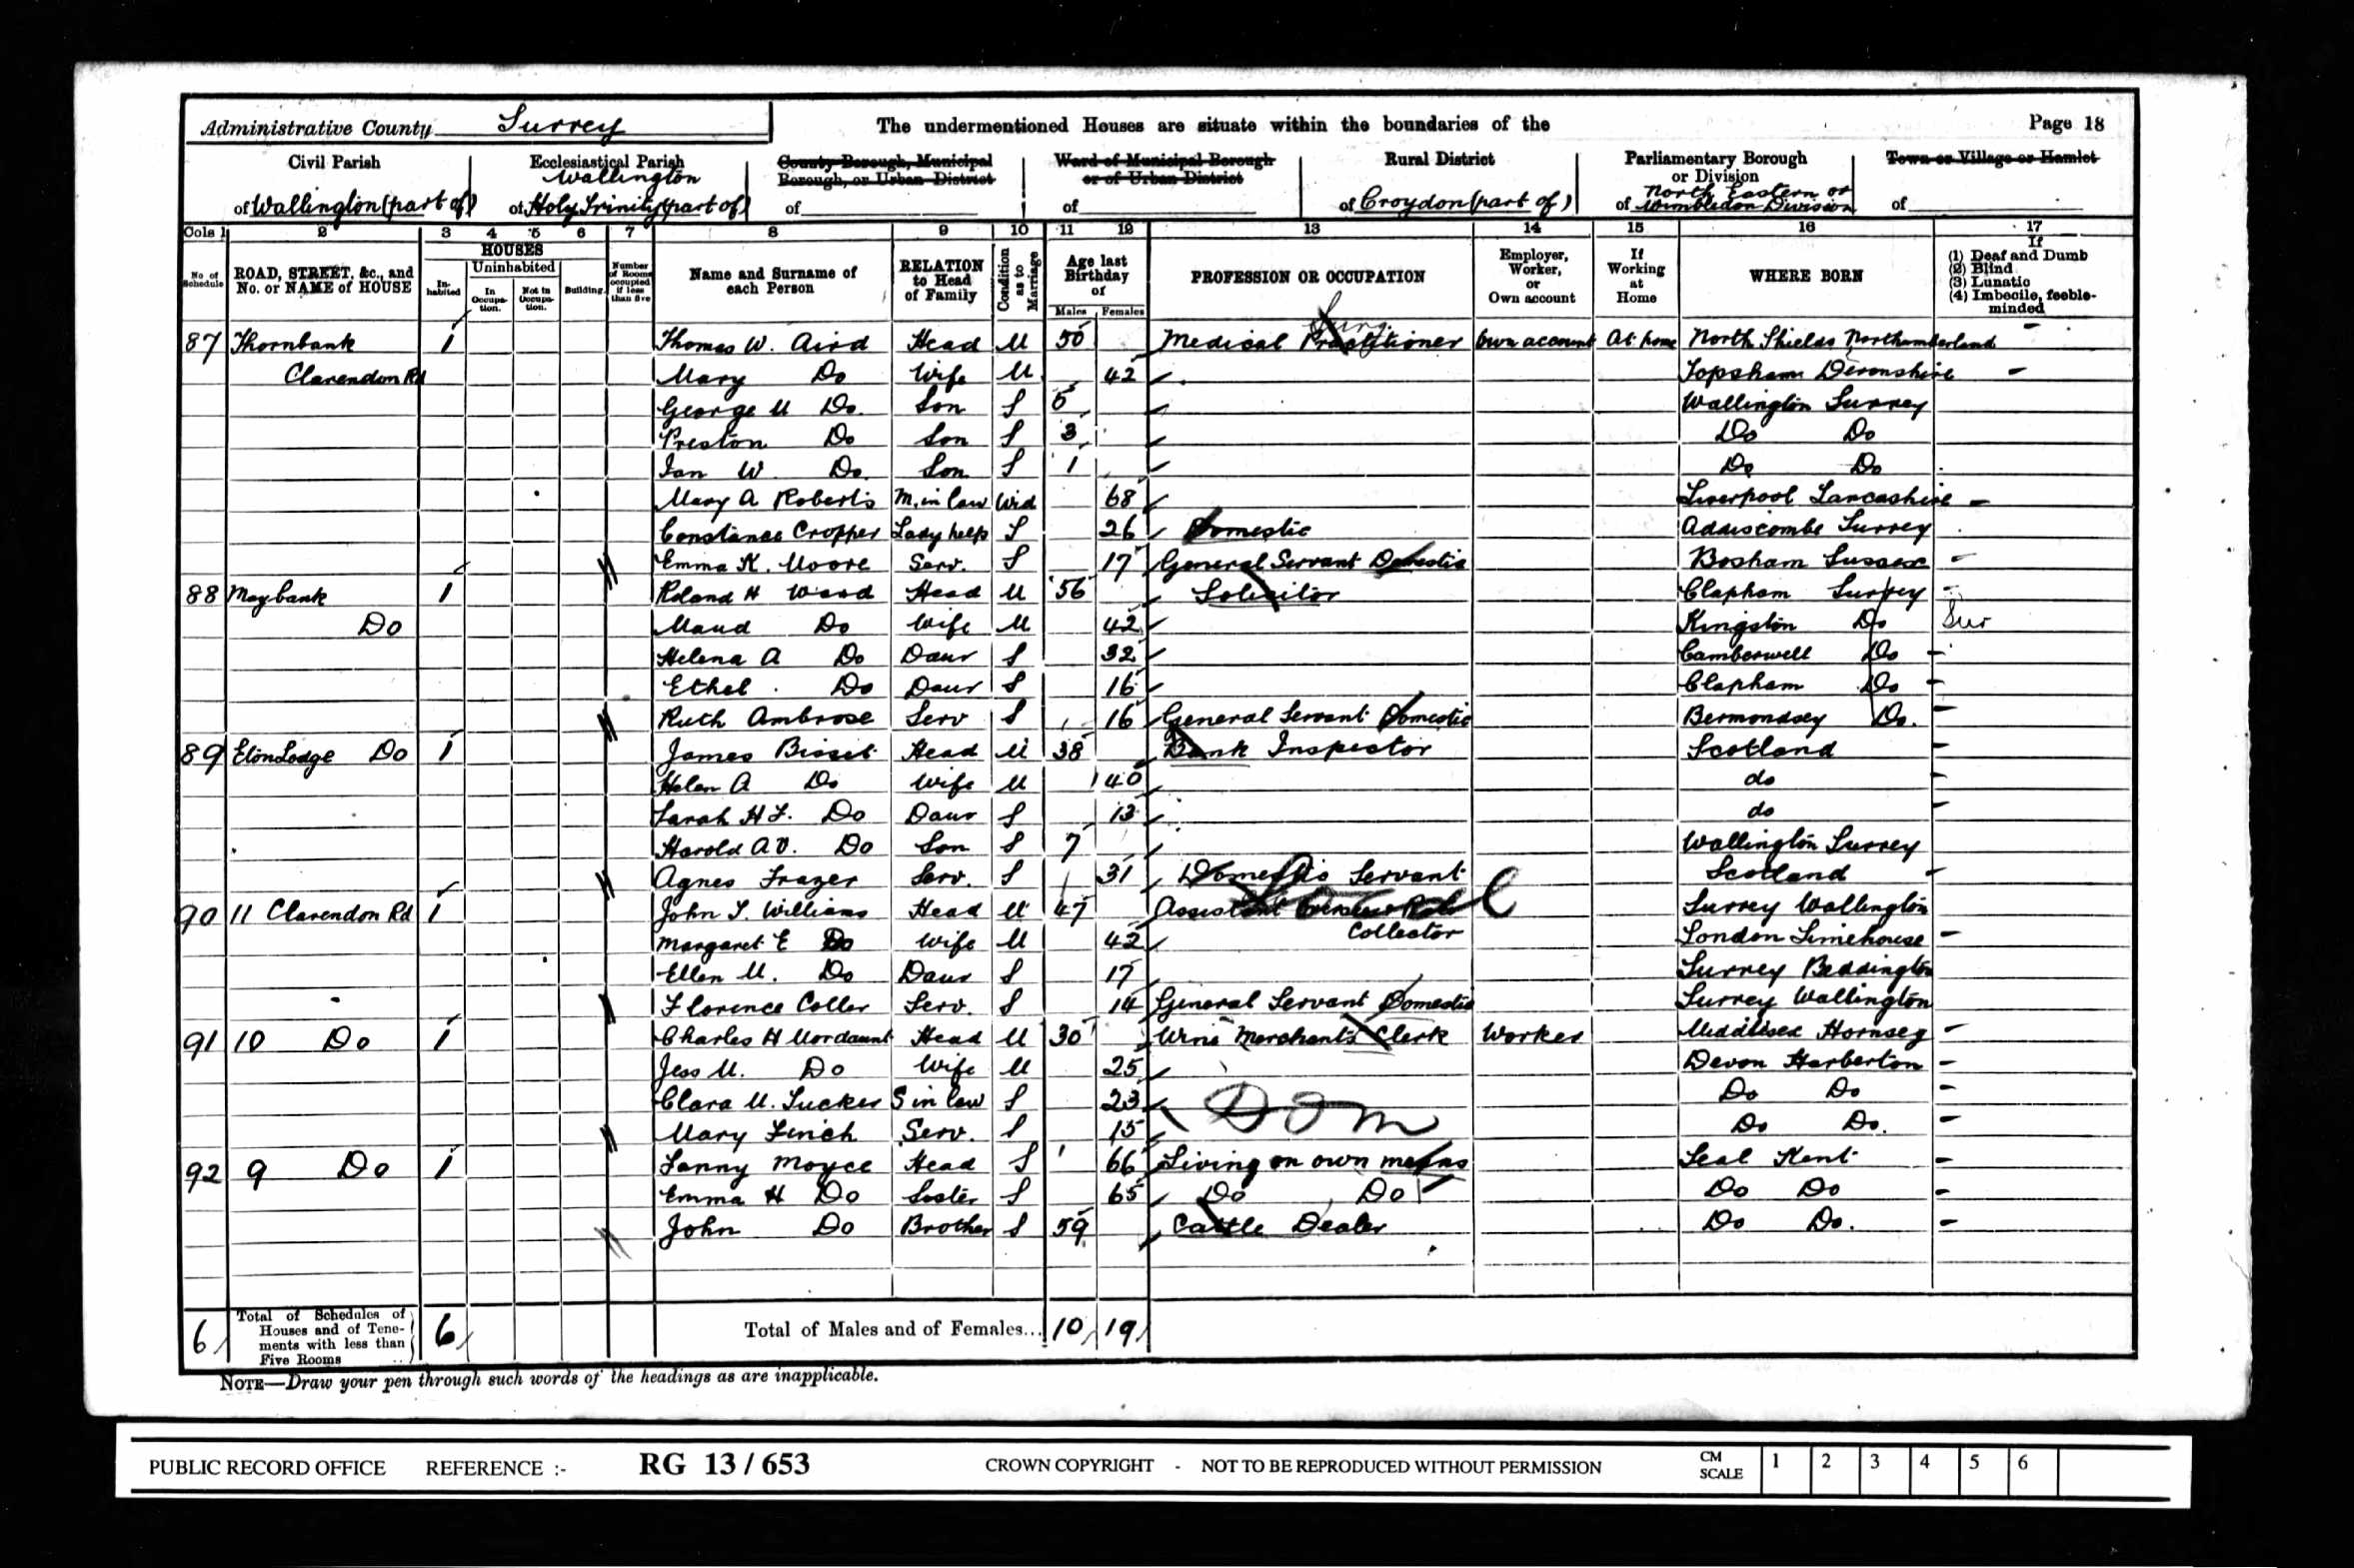 Administrative County Surrey The undermentioned Houses are situate within the boundaries of the Page 18
Civil Parish of Wallington (part of) Ecclesiastical Parish Wallington of Holy Trinity (part of) County Borough, Municipal Borough, or Urban District of Ward of Municipal Borough or of Urban District of Rural District of Croydon (part of) Parliamentary Borough or Division of North Eastern or Wimbledon Division Town or Village or Hamlet of
Cols 1 2 3 4 5 6 7 8 9 10 11 12 13 14 15 16 17
No of Schedule ROAD, STREET, &c., and No. or NAME of HOUSE HOUSES Inhabited Uninhabited In Occupation. Not in Occupation. Building. Number of Rooms occupied if less than five Name and Surname of each Person RELATION to Head of Family Condition as to Marriage Age last Birthday of Males Females PROFESSION OR OCCUPATION Employer, Worker, or Own account If Working at Home WHERE BORN If (1) Deaf and Dumb (2) Blind (3) Lunatic (4) Imbecile, feeble-minded
87 Thornbank 1 Thomas W. Aird Head M 50 Medical Practitioner Surg. Own account At home North Shields Northumberland -
Clarendon Rd Mary Do Wife M 42 Topsham Devonshire -
George M Do. Son S 5 Wallington Surrey
Preston Do Son S 3 Do Do
Ian W. Do. Son S 1 Do Do
Mary A Roberts M. in law Wid 68 Liverpool Lancashire -
Constance Cropper Lady help S 26 Domestic Addiscombe Surrey
Emma K. Moore Serv. S 17 General Servant Domestic Bosham Sussex -
88 Maybank 1 Roland H Wood Head M 56 Solicitor Clapham Surrey -
Do Maud Do Wife M 42 Kingston Do Sur
Helena A Do Daur S 32 Camberwell Do -
Ethel. Do Daur S 16 Clapham Do -
Ruth Ambrose Serv S 16 General Servant Domestic Bermondsey Do. -
89 Eton Lodge Do 1 James Bisset Head M 38 Bank Inspector Scotland -
Helen A Do Wife M 40 do -
Sarah H F. Do Daur S 13 do -
Harold A V. Do Son S 7 Wallington Surrey
Agnes Frazer Serv. S 31 Domestic Servant Scotland -
90 11 Clarendon Rd 1 John S. Williams Head M 47 Assistant Overseer Rate Surrey Wallington
Collector
Margaret E Do Wife M 42 London Limehouse -
Ellen M. Do Daur S 17 Surrey Beddington
Florence Coller Serv. S 14 General Servant Domestic Surrey Wallington
91 10 Do 1 Charles H Mordaunt Head M 30 Wine Merchants Clerk Worker Middlesex Hornsey -
Jess M. Do Wife M 25 Devon Harberton -
Clara M. Tucker S in law S 23 Do Do -
Mary Finch Serv. S 15 Dom Do Do. -
92 9 Do 1 Fanny Moyce Head S 66 Living on own means Seal Kent -
Emma H Do Sister S 65 Do Do Do Do -
John Do Brother S 59 Cattle Dealer Do Do. -
6 Total of Schedules of Houses and of Tenements with less than Five Rooms 6 Total of Males and of Females... 10 19
NOTE—Draw your pen through such words of the headings as are inapplicable.
PUBLIC RECORD OFFICE REFERENCE :- RG 13 / 653 CROWN COPYRIGHT - NOT TO BE REPRODUCED WITHOUT PERMISSION CM SCALE 1 2 3 4 5 6